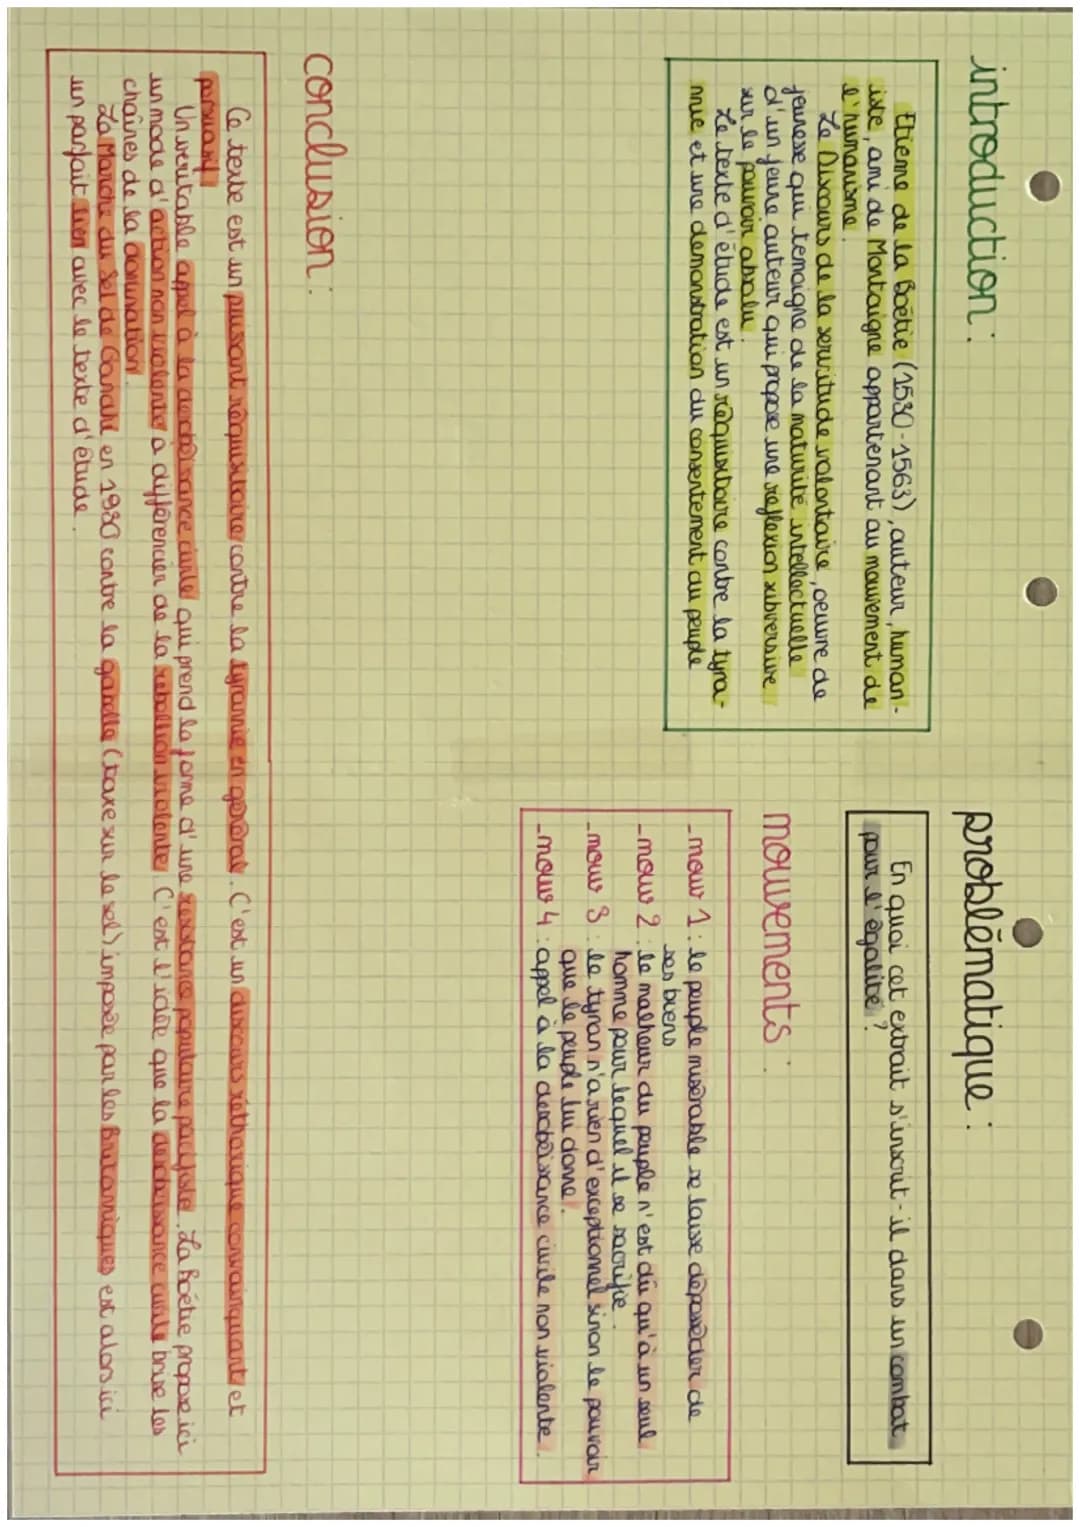 introduction :
Etienne de la Boétie (1530-1563), auteur, human-
iste, ami de Montaigne appartenant au mouvement de
l'humanisme.
Le Discours de la servitude volontaire, oeuvre de
jeunesse qui temoigne de la maturité intellectuelle
d'un jeune auteur qui propose une reflexion subversive
sur le pouvoir absolu.
Le texte d'étude est un réquisitoire contre la tyra-
nnie et une demonstration du consentement du peuple
problématique :
En quoi cet extrait s'inscrit-il dans un combat
pour l'égalité ?
mouvements :
-mouv 1 : le peuple misérable se laisse déposséder de
ses biens
-mouv 2 : le malheur du peuple n'est dû qu'à un seul
homme pour lequel il se sacrifie.
-mouv 3 : le tyran n'a rien d'exceptionnel sinon le pouvoir
que le peuple lui donne.
-mouv 4 : appel à la desobéissance civile non violente.
conclusion :
Ce texte est un puissant réquisitoire contre la tyrannie en général. C'est un discours réthorique convainquant et
persuasif
Un veritable appel à la desobéissance civile qui prend la forme d'une resistance populaire pacifiste. La Boétie propose ici
un mode d'action non violente à différencier de la rebellion violente. C'est l'idée que la desobeissance civile brise les
chaînes de la domination.
La Marche du Sel de Gandhi en 1930 contre la gabelle (taxe sur le sel) imposée par les Britanniques est alors ici
un parfait lien avec le texte d'étude.